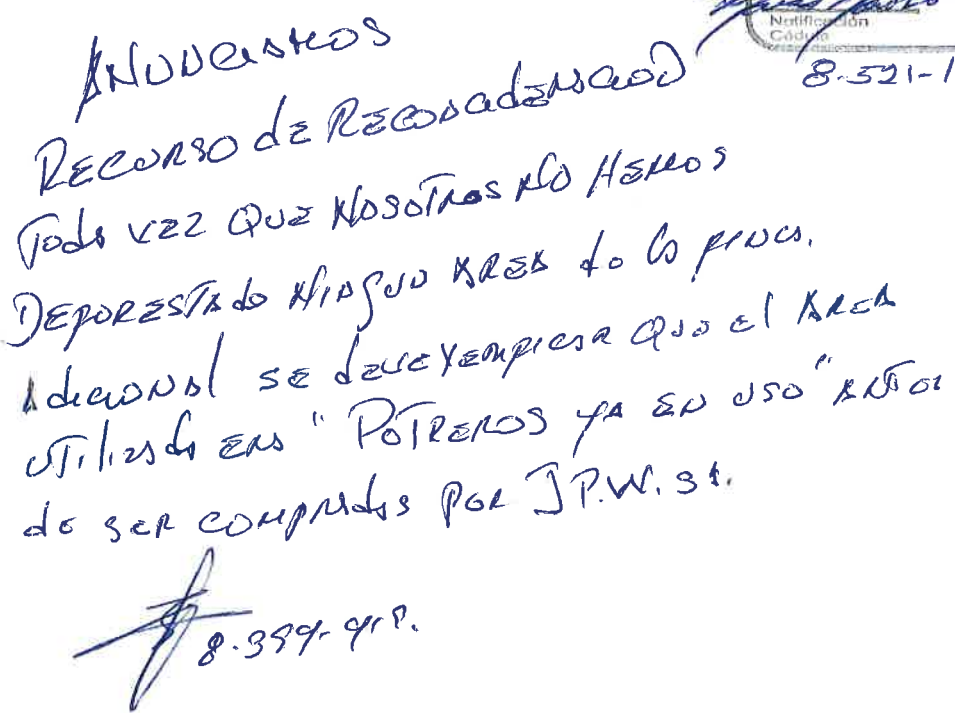 Notificación
Cédula
8-521-1
ANUNCIAMOS
RECURSO DE RECONSIDERACION
Toda VEZ QUE NOSOTROS NO HEMOS
DEFORESTAdo NINGUN AREA de la finca.
Adicional se deve que el AREA
utilizada ERA "POTREROS YA EN USO" ANTES
de SER COMPRAdas POR J P.W. S.A.
8-399-